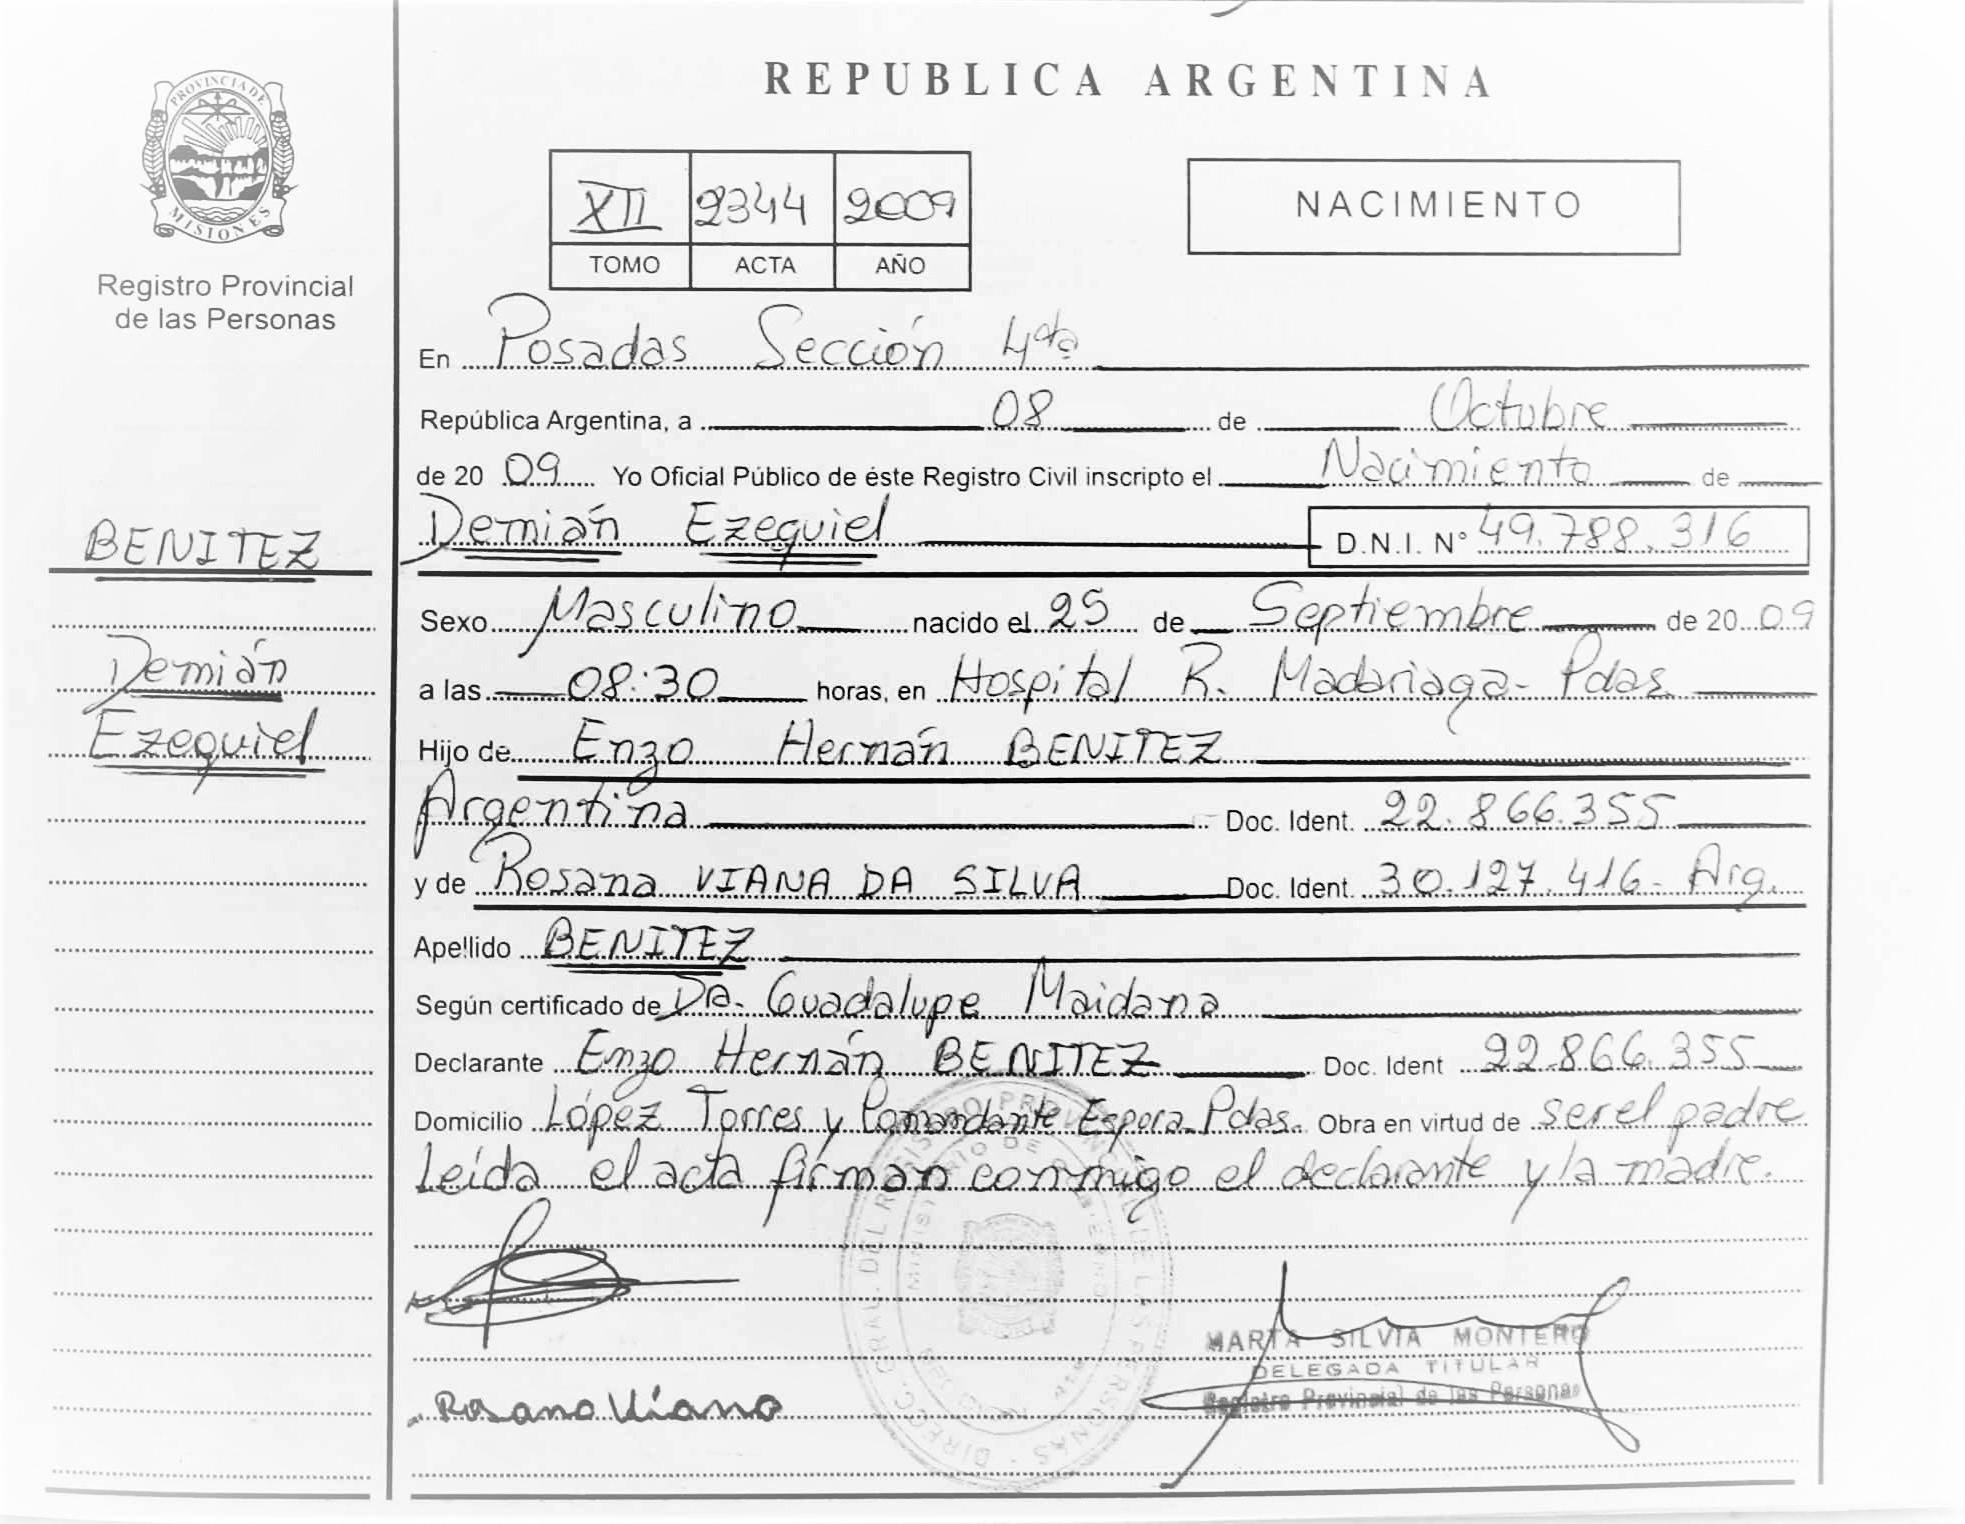 PROVINCIA DE
MISIONES
Registro Provincial
de las Personas
BENITEZ
Demián
Ezequiel
REPUBLICA ARGENTINA
XII 2344 2009
TOMO ACTA AÑO
NACIMIENTO
En Posadas Sección 4ta
República Argentina, a 08 de Octubre
de 20 09 Yo Oficial Público de éste Registro Civil inscripto el Nacimiento de
Demián Ezequiel D.N.I. N° 49.788.316
Sexo Masculino nacido el 25 de Septiembre de 20 09
a las 08:30 horas, en Hospital R. Madariaga- Pdas.
Hijo de Enzo Hernán BENITEZ
Argentina Doc. Ident. 22.866.355
y de Rosana VIANA DA SILVA Doc. Ident. 30.127.416- Arg.
Apellido BENITEZ
Según certificado de Dra. Guadalupe Maidana
Declarante Enzo Hernán BENITEZ Doc. Ident 22.866.355
Domicilio López Torres y Comandante Espora-Pdas. Obra en virtud de ser el padre
Leída el acta firman conmigo el declarante y la madre.
MARTA SILVIA MONTERO
DELEGADA TITULAR
Registro Provincial de las Personas
Rosana Viana
DIRECC. GRAL. DEL REGISTRO PROVINCIAL DE LAS PERSONAS